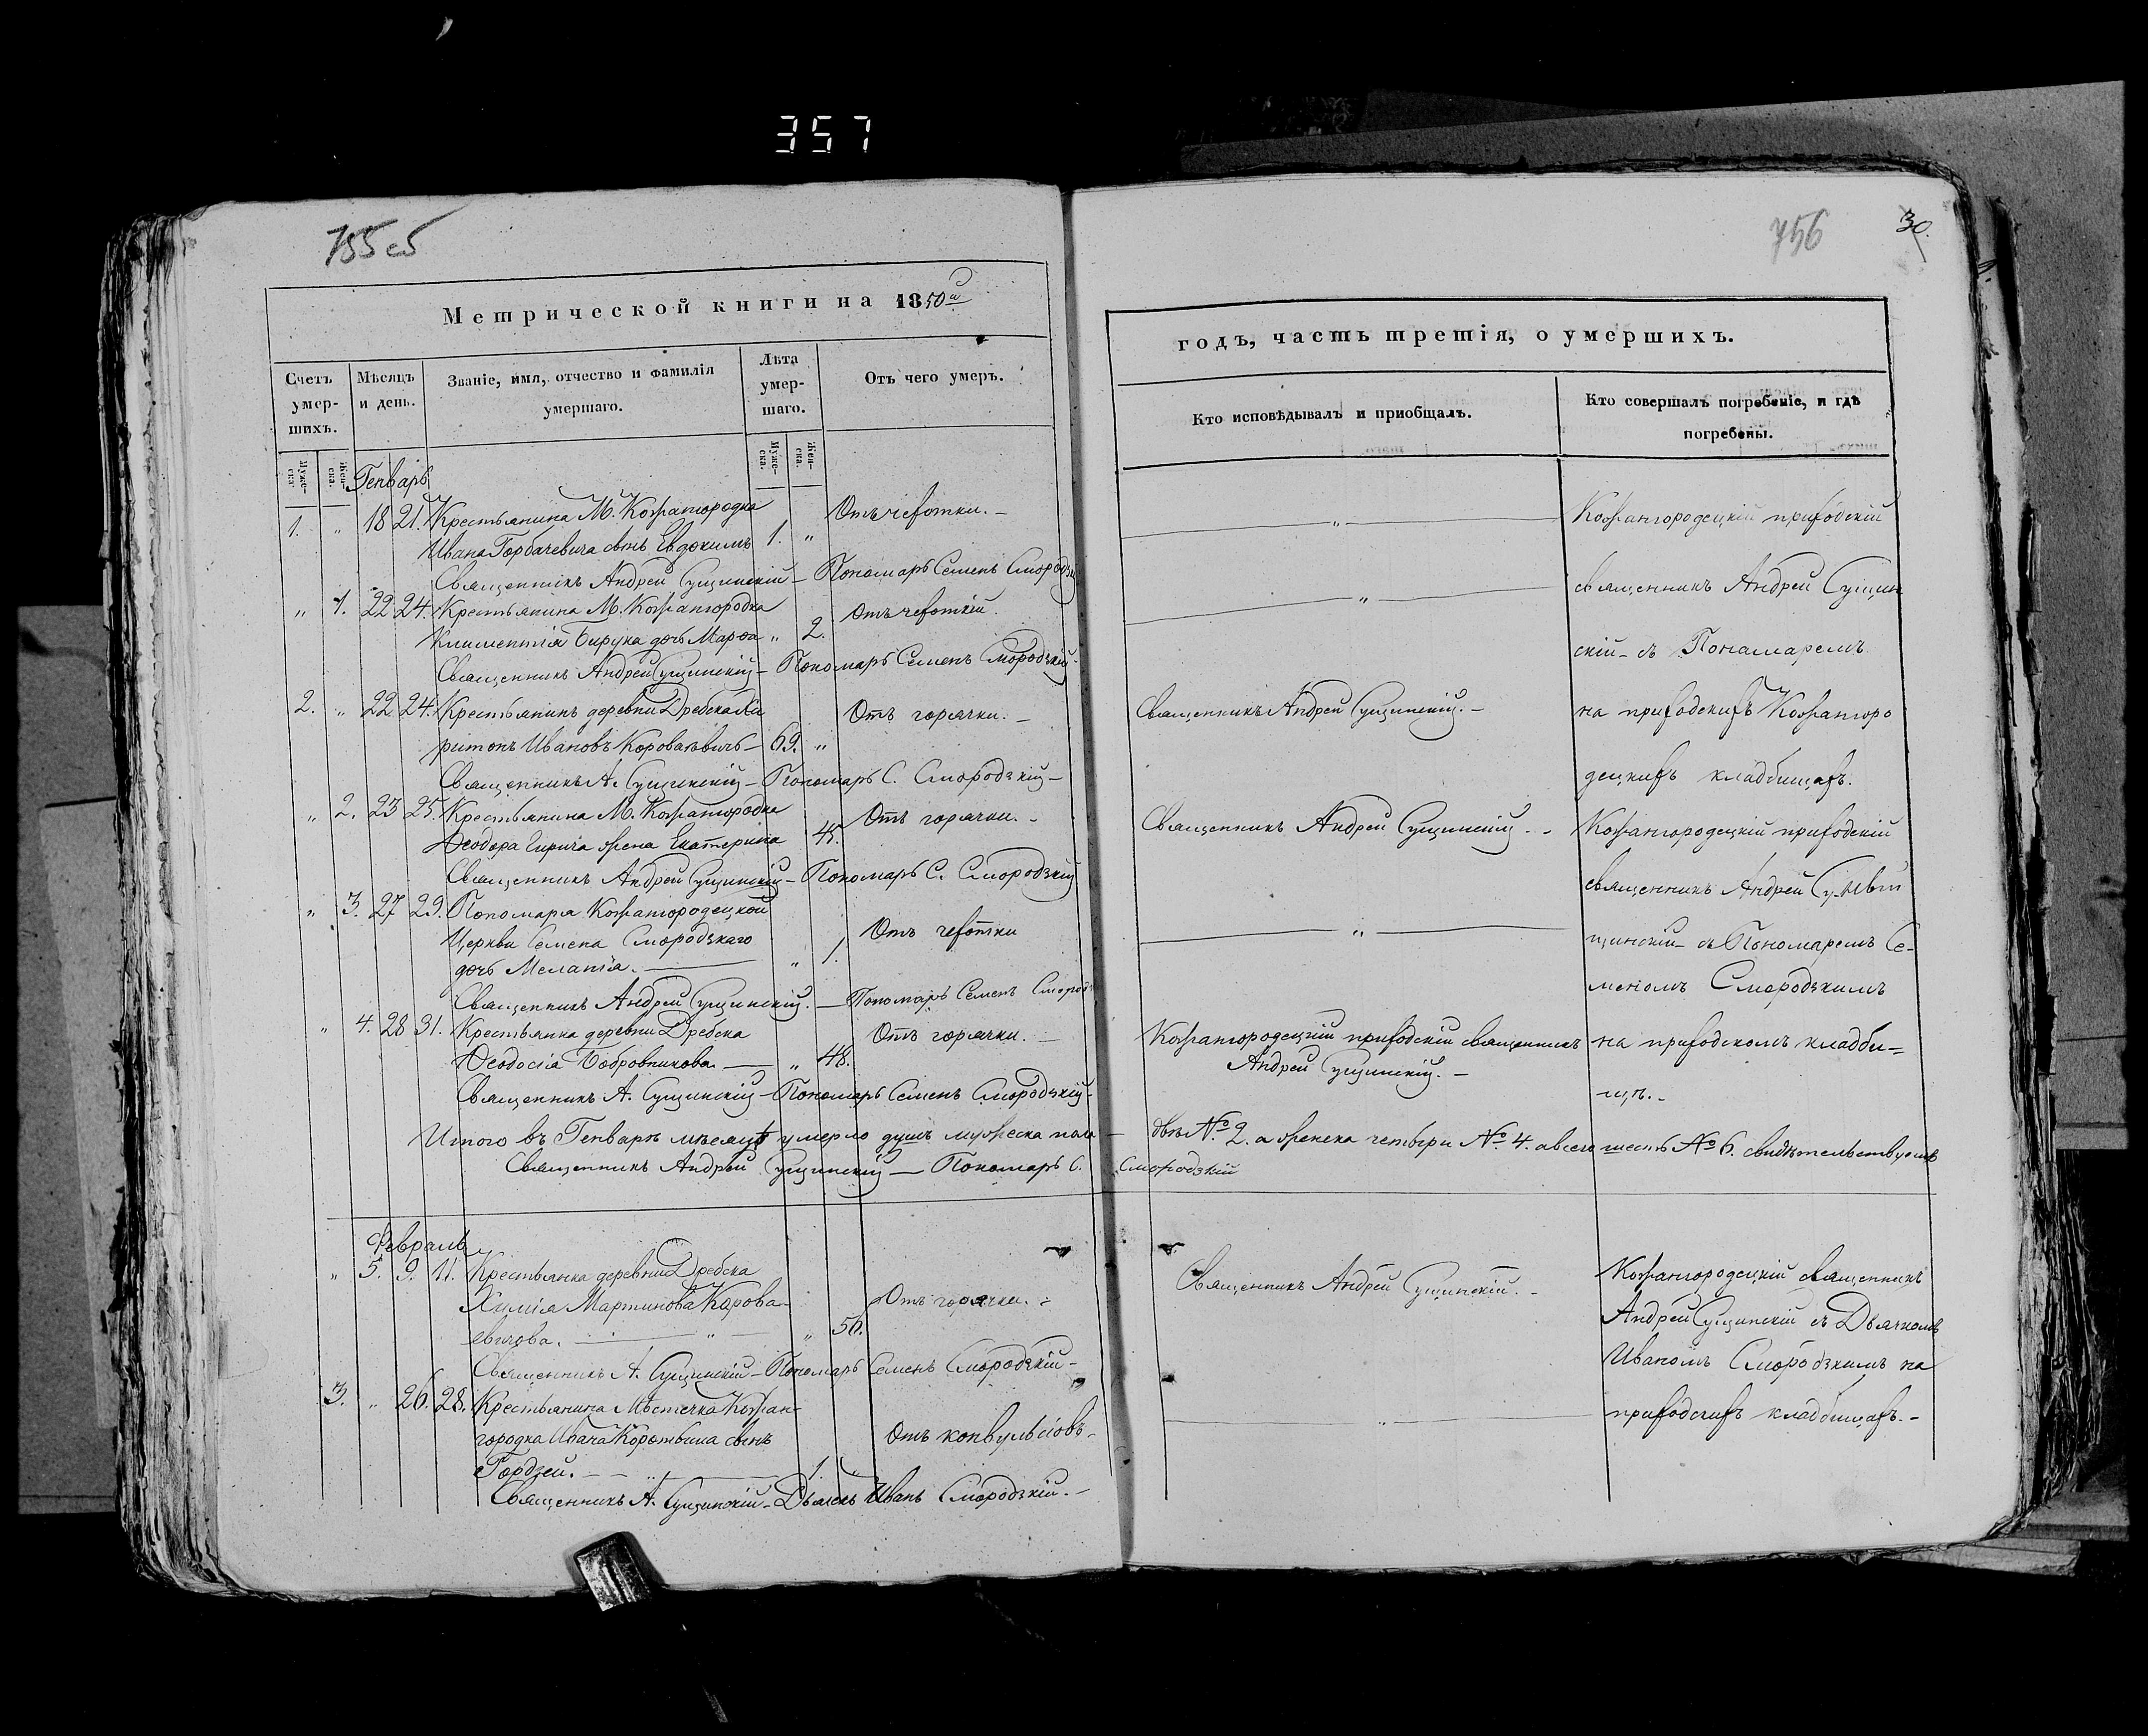 357
755 об
756
30.
Метрической книги на 1850й
годъ, часть третія, о умершихъ.
Счетъ умершихъ.
Мѣсяцъ и день.
Званіе, имя, отчество и фамилія умершаго.
Лѣта умершаго.
Отъ чего умеръ.
Кто исповѣдывалъ и приобщалъ.
Кто совершалъ погребеніе, и гдѣ погребены.
Муже-ска.
Жен-ска.
Муже-ска.
Жен-ска.
Генварь
1. „ 18 21. Крестьянина М. Кожангородка
Ивана Горбачевича сынъ Евдокимъ 1. „
Отъ чехотки. –
Священникъ Андрей Сущинскій – Пономарь Семенъ
„ 1. 22 24. Крестьянина М. Кожангородка
Климентія Бирука дочь Марѳа „ 2.
Отъ чехоткій.
Священникъ Андрей Сущинскій – Пономарь Семенъ Смородзкій
2. „ 22 24. Крестьянинъ деревни Дребска Ха
ритонъ Ивановъ – 69. „
Отъ горячки. –
Священникъ А. Сущинскій – Пономарь С. Смородзкій –
„ 2. 23 25. Крестьянина М. Кожангородка
Ѳеодора жена Екатерина 45.
Отъ горячки. –
Священникъ Андрей Сущинскій – Пономарь С. Смородзкій
„ 3. 27 29. Пономаря Кожангородецкой
Церкви Семена Смородзкаго
дочь Меланія. – „ 1.
Отъ чехотки
Священникъ Андрей Сущинскій. – Пономарь Семенъ
„ 4. 28 31. Крестьянка деревни Дребска
Ѳеодосія Бобровникова – „ 48.
Отъ горячки. –
Священникъ А. Сущинскій – Пономарь Семенъ Смородзкій –
Итого въ Генварѣ мѣсяцѣ умерло душъ мужеска пола – двѣ № 2. а женска четыри № 4. а всего шесть № 6.
Священникъ Андрей Сущинскій – Пономарь С. Смородзкій
Февраль
„ 5. 9. 11. Крестьянка деревни Дребска
Мартинова Корова-
евичова. – „ – „ 50.
Отъ горячки. –
Священникъ А. Сущинскій – Пономарь Семенъ Смородзкій –
3. „ 26. 28. Крестьянина Мѣстечка Кожан-
городка Ивана сынъ
Гордѣй. – – 1.
Отъ конвульсіовъ –
Священникъ А. Сущинскій – Дьячекъ Иванъ Смородзкій. –
„
„
Священникъ Андрей Сущинскій. –
Священникъ Андрей Сущинскій. –
„
Кожангородецкій приходскій священникъ
Андрей Сущинскій. –
Священникъ Андрей Сущинскій. –
„
Кожангородецкій приходскій
священникъ Андрей Сущин
скій – съ Пономаремъ
на приходскихъ Кожангоро
децкихъ кладбищахъ.
Кожангородецкій приходскій
священникъ Андрей
щинскій – съ Пономаремъ Се-
меномъ Смородзкимъ
на приходскомъ кладби-
щѣ. –
Кожангородецкій священникъ
Андрей Сущинскій съ Дьячкомъ
Иваномъ Смородзкимъ на
приходскихъ кладбищахъ. –